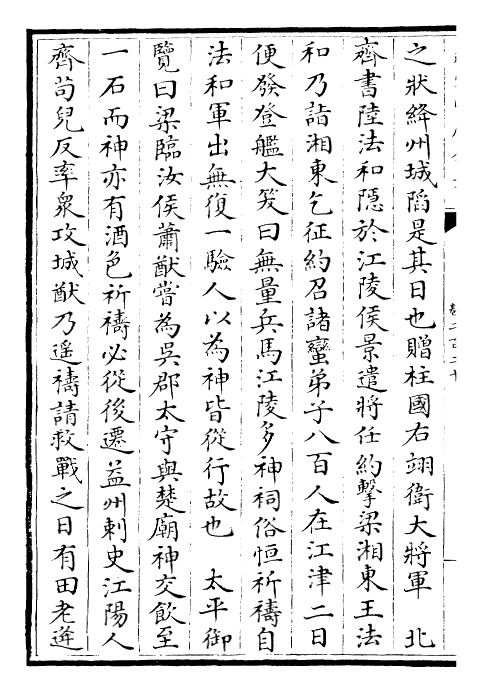 之狀絳州城䧟是其日也贈柱國右翊衛大將軍　北
齊書陸法和隱於江陵侯景遣將任約擊梁湘東王法
和乃詣湘東乞征約召諸蠻弟子八百人在江津二日
便發登艦大笑曰無量兵馬江陵多神祠俗恒祈禱自
法和軍出無復一驗人以為神皆從行故也　太平御
覽曰梁臨汝侯蕭猷嘗為吳郡太守與楚廟神交飲至
一石而神亦有酒色祈禱必從後遷益州刺史江陽人
齊茍兒反率衆攻城猷乃遥禱請救戰之日有田老逰